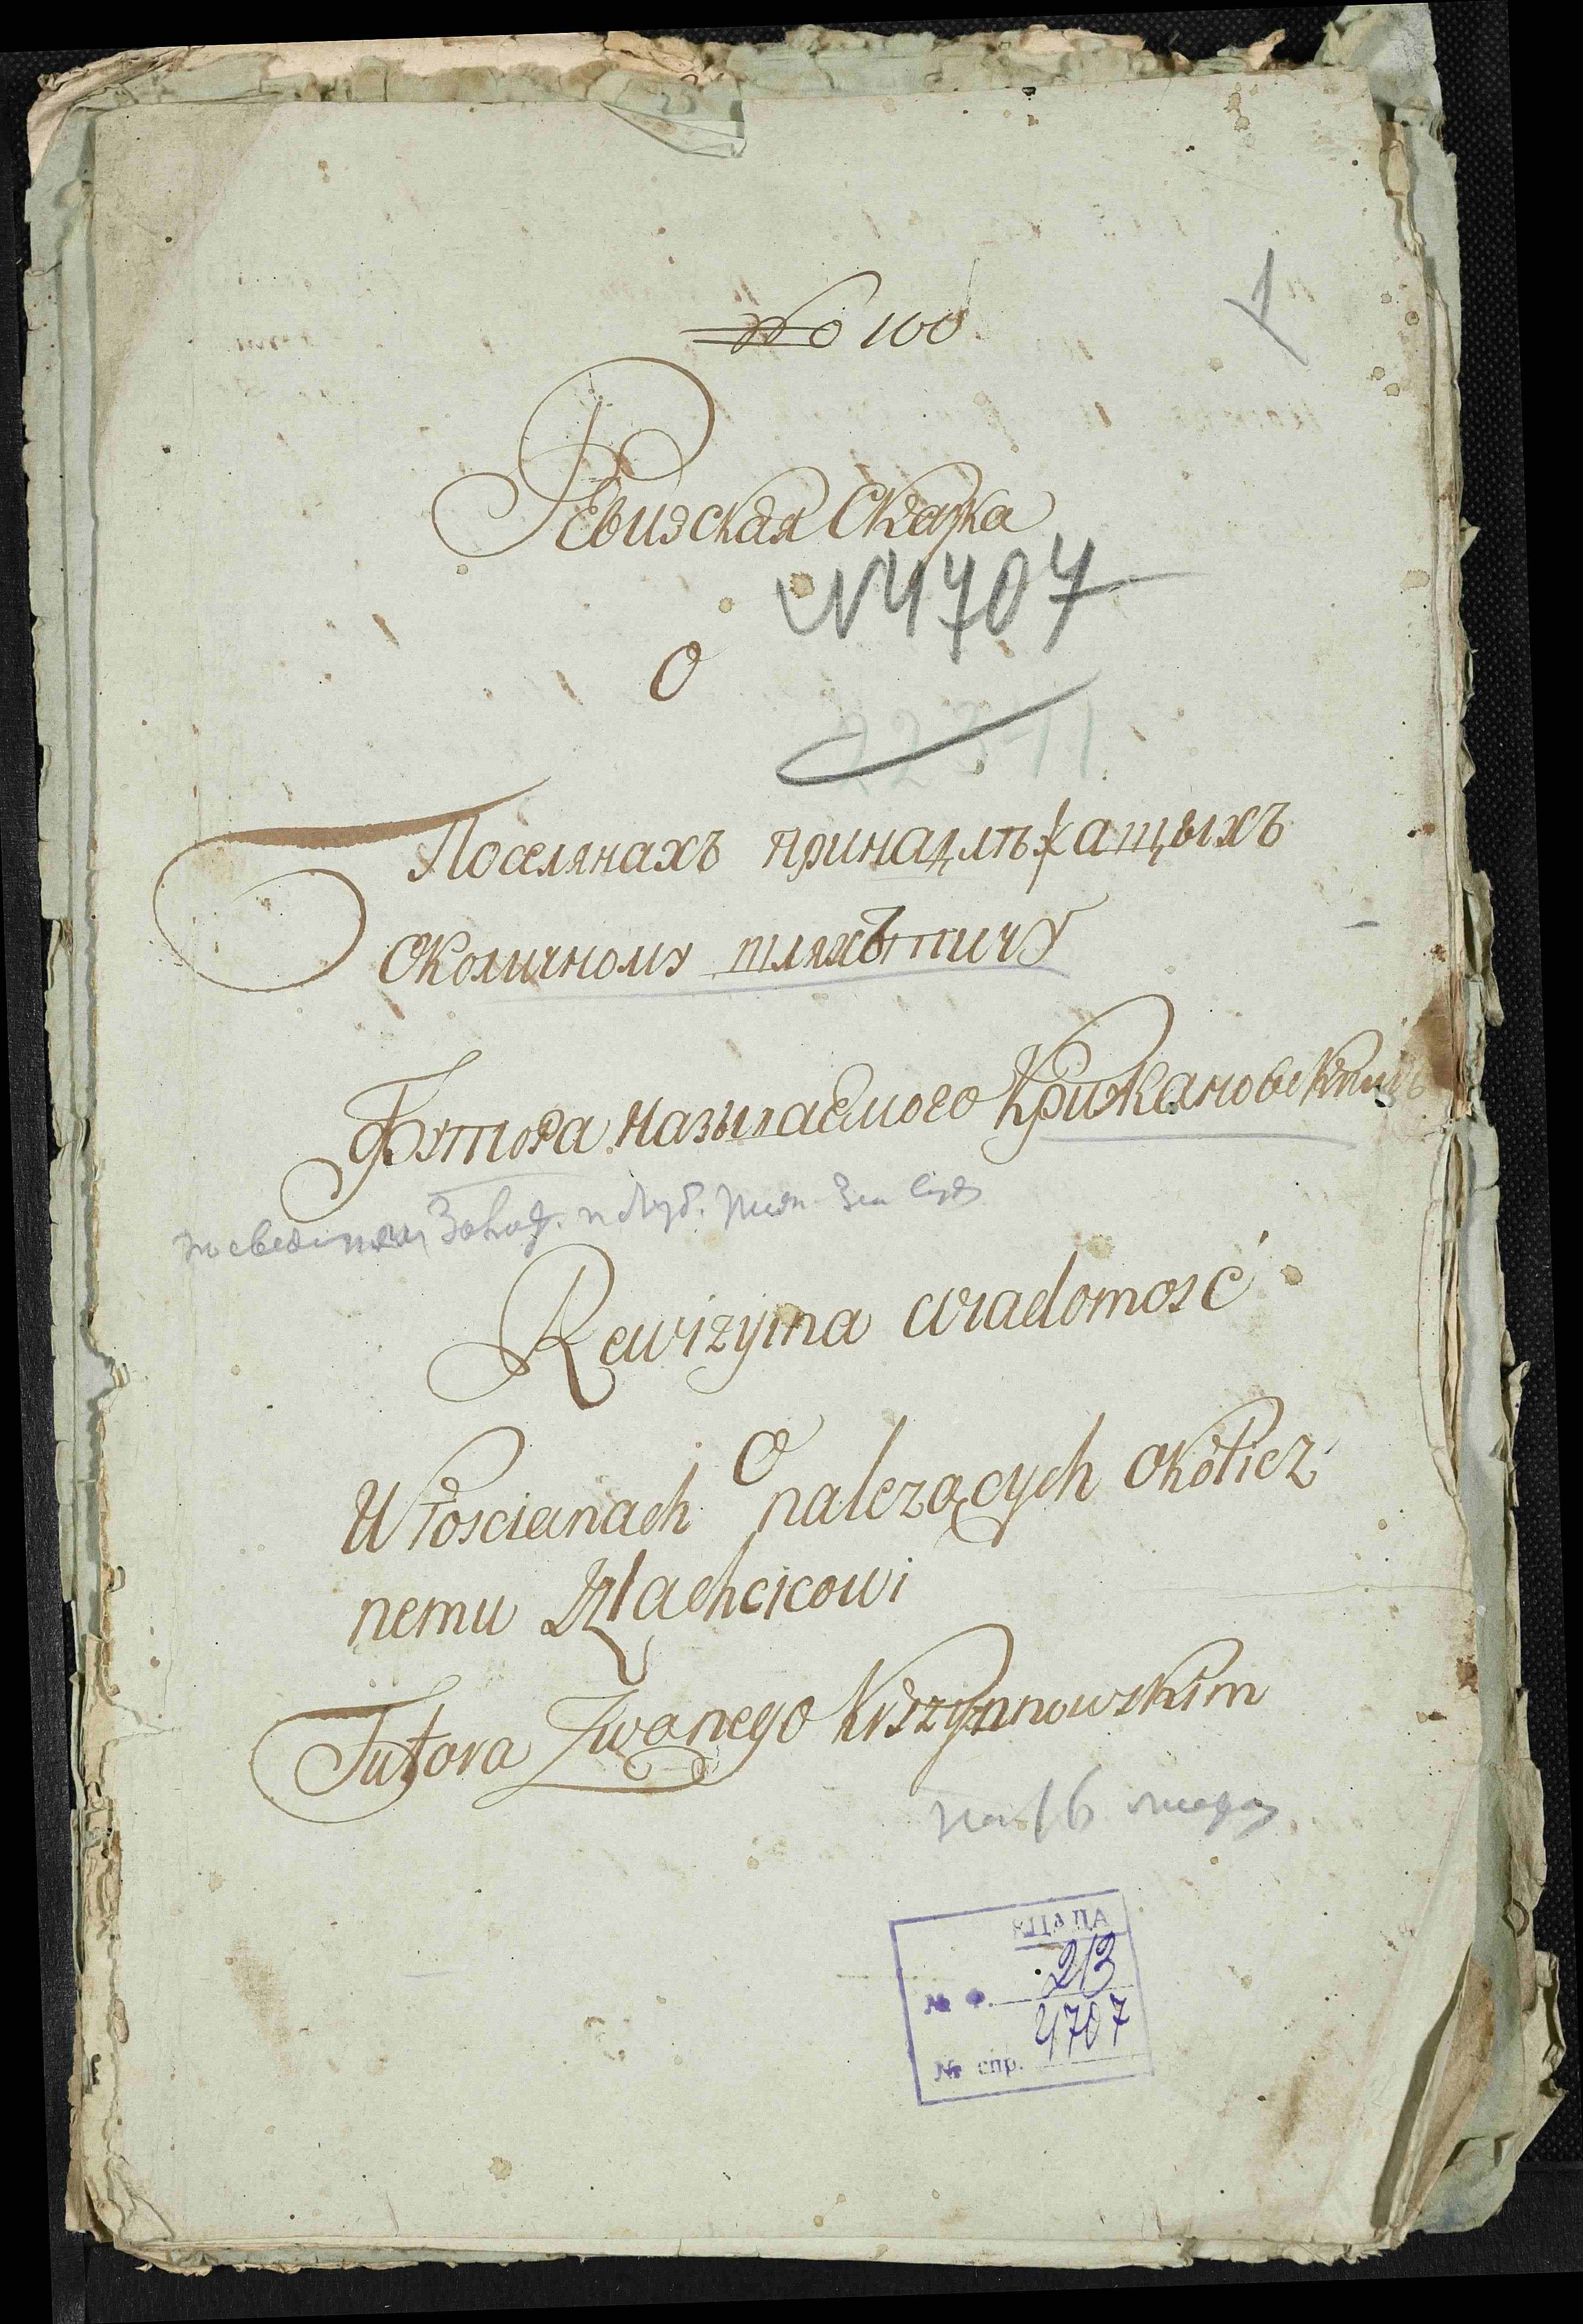 № 100
1
Ревизская Сказка
N 4707
О
22311
Поселянахъ принадлѣжащыхъ
околичному шляхътичу
Футора называемого Крижановскимъ
Rewizyina wiadomosć
O
Włoscianach nalezących okolicz
nemu Szlachcicowi
Futora Zwanego Krszyzannowskim
на 16 листах
ЦДІА
№ ф. 213
№ спр. 4707